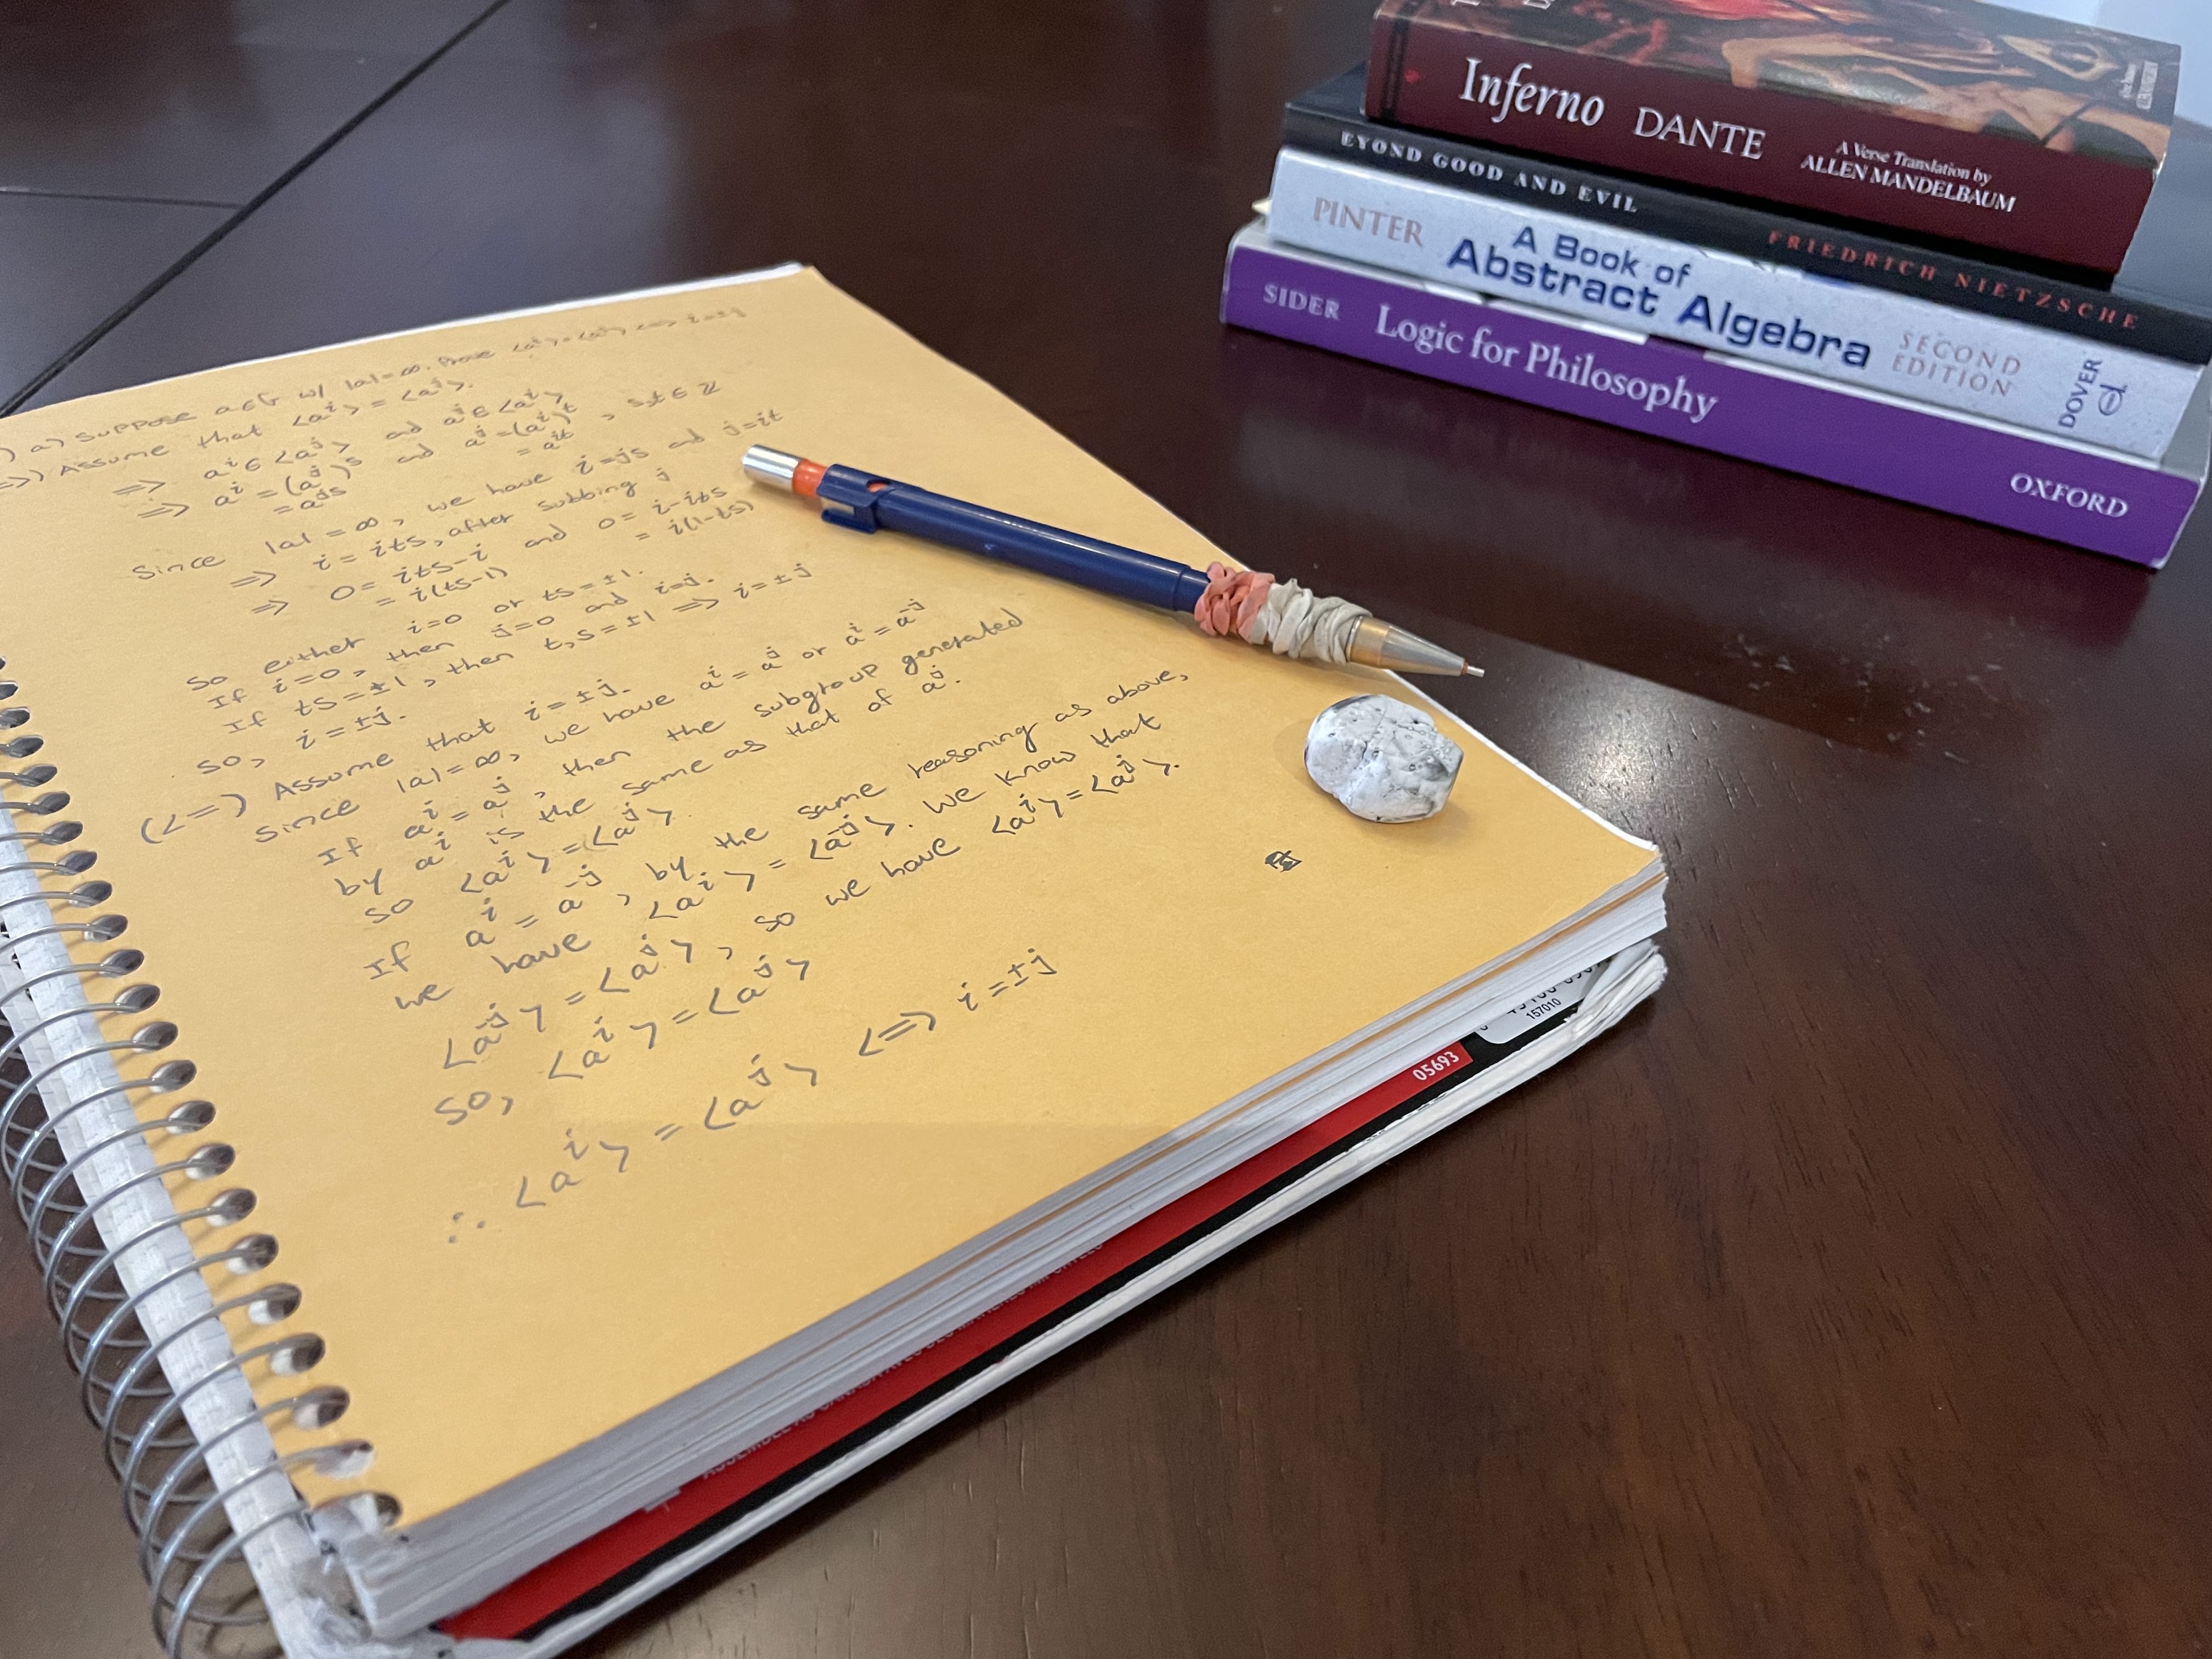 Inferno DANTE A Verse Translation by ALLEN MANDELBAUM
EYOND GOOD AND EVIL FRIEDRICH NIETZSCHE
PINTER A Book of Abstract Algebra SECOND EDITION DOVER
SIDER Logic for Philosophy OXFORD
) a) Suppose a∈G w/ |a|=∞. Prove <a^i>=<a^j> <=> i=±j
=>) Assume that <a^i> = <a^j>.
=> a^i ∈ <a^j> and a^j ∈ <a^i>
=> a^i = (a^j)^s and a^j = (a^i)^t , s,t ∈ ℤ
= a^js = a^it
Since |a| = ∞, we have i=js and j=it
=> i = its, after subbing j
=> 0 = its-i and 0 = i-its
= i(ts-1) = i(1-ts)
So either i=0 or ts=±1.
If i=0, then j=0 and i=j.
If ts=±1, then t,s=±1 => i=±j
So, i=±j.
(<=) Assume that i=±j.
Since |a|=∞, we have a^i = a^j or a^i = a^-j
If a^i = a^j, then the subgroup generated
by a^i is the same as that of a^j.
So <a^i> = <a^j>.
If a^i = a^-j, by the same reasoning as above,
we have <a^i> = <a^-j>. We know that
<a^-j> = <a^j>, so we have <a^i> = <a^j>.
So, <a^i> = <a^j>
∴ <a^i> = <a^j> <=> i=±j
05693
157010